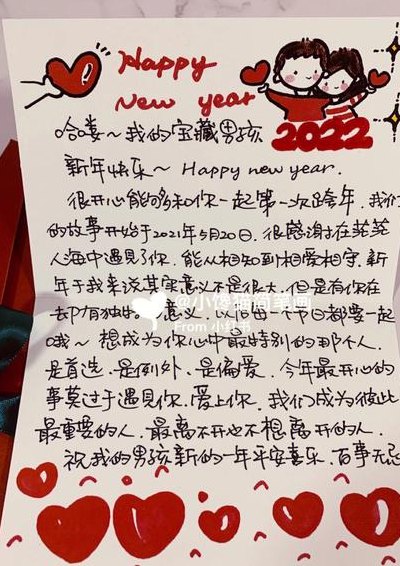 Happy
New year
2022
哈喽~我的宝藏男孩
新年快乐~ Happy new year.
很开心能够和你一起第一次跨年,我们
的故事开始于2021年5月20日.很感谢在茫茫
人海中遇见了你,能从相知到相爱相守.新
年于我来说其实意义不是很大,但是有你在
意义.以后每一个节日都要一起
@小馋猫简笔画
From 小红书
哦~ 想成为你心中最特别的那个人,
是首选.是例外.是偏爱.今年最开心的
事莫过于遇见你.爱上你.我们成为彼此
最重要的人,最离不开也不想离开的人.
祝我的男孩新的一年平安喜乐.百事无忌